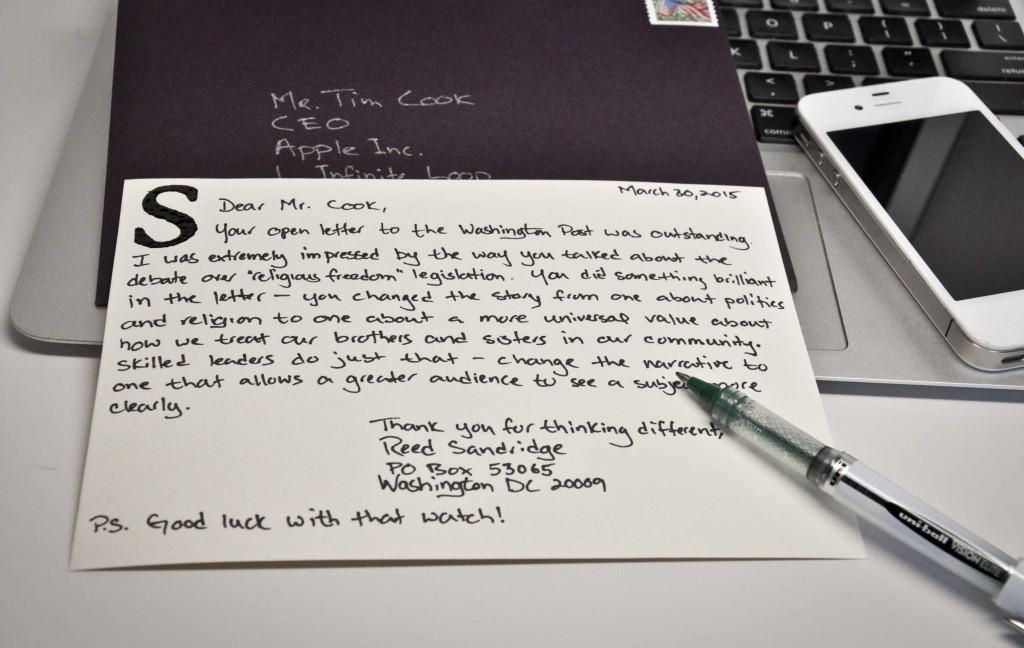 Mr. Tim Cook
CEO
Apple Inc.
1 Infinite Loop
March 30, 2015
S
Dear Mr. Cook,
Your open letter to the Washington Post was outstanding.
I was extremely impressed by the way you talked about the
debate over "religious freedom" legislation. You did something brilliant
in the letter – you changed the story from one about politics
and religion to one about a more universal value about
how we treat our brothers and sisters in our community.
Skilled leaders do just that – change the narrative to
one that allows a greater audience to see a subject more
clearly.
Thank you for thinking different,
Reed Sandridge
PO Box 53065
Washington DC 20009
P.S. Good luck with that watch!
uni-ball VISION ELITE
delete
O P { [ } ]
K L : ; " '
enter
return
< , > . ? /
⌘